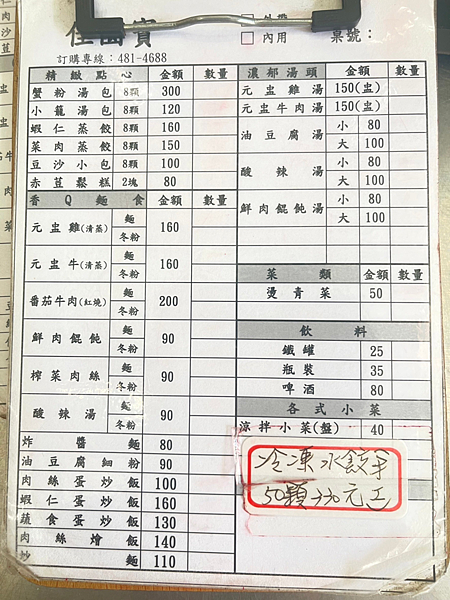 佳 寶
外帶
內用
桌號：
訂購專線：481-4688
精緻點心 金額 數量
蟹粉湯包 8顆 300
小籠湯包 8顆 120
蝦仁蒸餃 8顆 160
菜肉蒸餃 8顆 150
豆沙小包 8顆 100
赤荳鬆糕 2塊 80
香Q麵食 金額 數量
元盅雞(清蒸) 麵 冬粉 160
元盅牛(清蒸) 麵 冬粉 160
番茄牛肉(紅燒) 麵 冬粉 200
鮮肉餛飩 麵 冬粉 90
榨菜肉絲 麵 冬粉 90
酸辣湯 麵 冬粉 90
炸醬麵 80
油豆腐細粉 90
肉絲蛋炒飯 100
蝦仁蛋炒飯 160
蔬食蛋炒飯 130
肉絲燴飯 140
炒麵 110
濃郁湯頭 金額 數量
元盅雞湯 150(盅)
元盅牛肉湯 150(盅)
油豆腐湯 小 80
大 100
酸辣湯 小 80
大 100
鮮肉餛飩湯 小 80
大 100
菜類 金額 數量
燙青菜 50
飲料
鐵罐 25
瓶裝 35
啤酒 80
各式小菜
涼拌小菜(盤) 40
冷凍水餃
50顆 元正